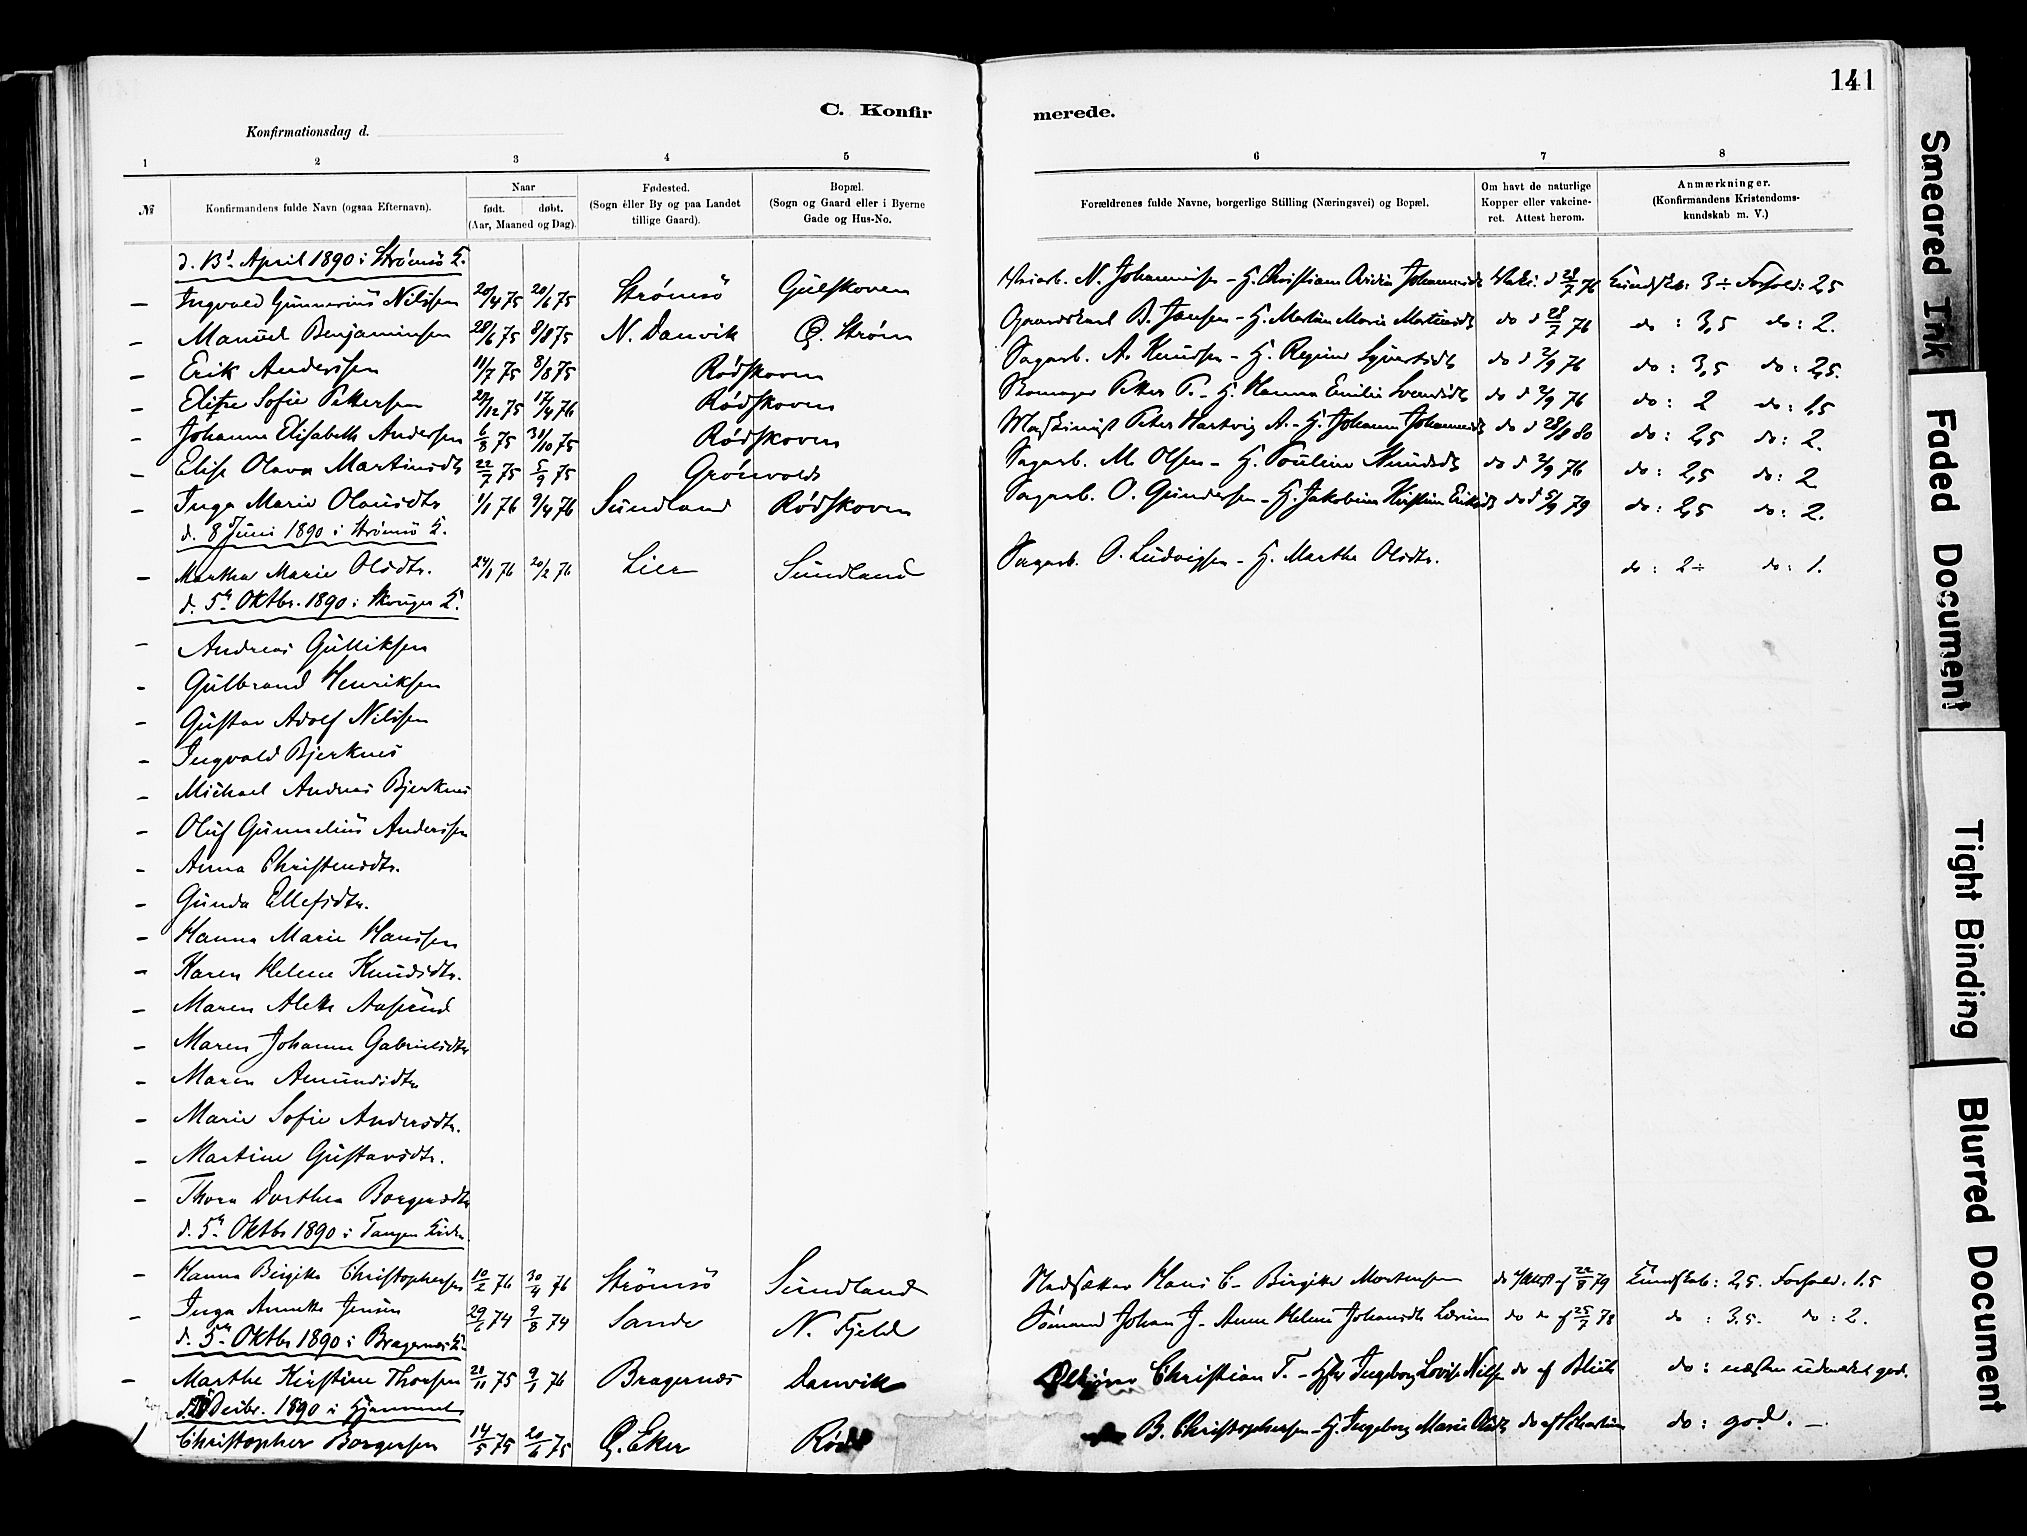 141
C. Konfirmerede.
Konfirmationsdag d.
1 2 3 4 5 6 7 8
№ Konfirmandens fulde Navn (ogsaa Efternavn). Naar født. døbt. (Aar, Maaned og Dag). Fødested. (Sogn eller By og paa Landet tillige Gaard). Bopæl. (Sogn og Gaard eller i Byerne Gade og Hus-No. Forældrenes fulde Navne, borgerlige Stilling (Næringsvei) og Bopæl. Om havt de naturlige Kopper eller vakcineret. Attest herom. Anmærkninger. (Konfirmandens Kristendomskundskab m. V.)
d. 13de April 1890 i Strømsö K.
– Ingvald Gunnerius Nilssen 20/4 75 20/6 75 Strømsö Gulskoven N. Johannesen - H. Christiane Johannesdt Vaks: d 28/7 76 Kundsk: 3÷ Forhold: 2,5
– Manuel Benjaminsen 28/6 75 8/8 75 N. Danvik Ø. Strøm Gaardskarl B. Jansen - H. Martine Marie Martinsdt do d 28/7 76 do : 3,5 do : 2.
– Erik Anderssen 11/7 75 8/8 75 Rödskoven Sagarb. A. Knudsen - H. Regine Syvertsdt do d 2/9 76 do : 3,5 do : 2,5.
– Elise Sofie Pettersen 27/12 75 17/4 76 Rødskoven Skomager Petter P. - H. Hanna Emilie Svendsdt do d 2/9 76 do : 2 do : 1,5
– Johanne Elisabeth Andersen 6/8 75 31/10 75 Rødskoven Maskinist Peter Hartvig A. - H. Johanne Johannesdt do d 28/8 80 do : 2,5 do : 2.
– Elise Olava Martinsdtr 22/7 75 5/9 75 Grönvold Sagarb. M. Olsen - H. Pouline Knudsdt do d 2/9 76 do : 2,5 do : 2
– Inga Marie Olausdtr 1/1 76 9/4 76 Sundland Rødskoven Sagarb. O. Gundersen - H. Jakobine Kirstine Eriksdt do d 5/9 79 do : 2,5 do : 2.
d. 8 Juni 1890 i Strømsö K.
– Martha Marie Olsdtr. 24/1 76 20/2 76 Lier Sundland Sagarb. O. Ludvigsen - H. Marthe Olsdtr. do : 2÷ do : 1.
d. 5te Oktbr. 1890 i Skouger K.
– Andreas Gulliksen
– Gulbrand Henriksen
– Gustav Adolf Nilssen
– Ingvald Bjerknes
– Michael Andreas Bjerknes
– Oluf Gunnelius Anderssen
– Anna Christensdtr.
– Gunda Ellefsdtr.
– Hanna Marie Hanssen
– Karen Helene Knudsdtr.
– Maren Alette Aaserud
– Maren Johanne Gabrielsdtr
– Maren Amundsdtr
– Marie Sofie Andersdtr.
– Martine Gustavsdtr.
– Thora Dorthea Borgersdtr
d. 5te Oktbr 1890 i Tangen Kirke
– Hanna Birgitte Christophersen 10/2 76 30/4 76 Strömsö Sundland Hans C - Birgitte Mortensen do Attest af 22/8 79 Kundskab: 2,5. Forhold. 1.5
– Inga Annette Jensen 29/6 74 9/8 74 Sande N. Fjeld Sömand Johan J - Anne Helene Johansdt do af 25/7 78 do : 3.5. do : 2.
d. 5te Oktbr 1890 i Bragernæs K
– Marthe Kirstine Thorsen 21/11 75 9/1 76 Bragernæs Danvik Christian T. - Ingeborg Lovise Nilsen do af Blich do : næsten udmærket god.
Decbr. 1890 i Hjemmet
1 Christopher Borgersen 14/5 75 20/6 75 Ø. Eker B. Christophersen - H. Ingeborg Marie Olsdt do af do : god. –
Smeared Ink
Faded Document
Tight Binding
Blurred Document